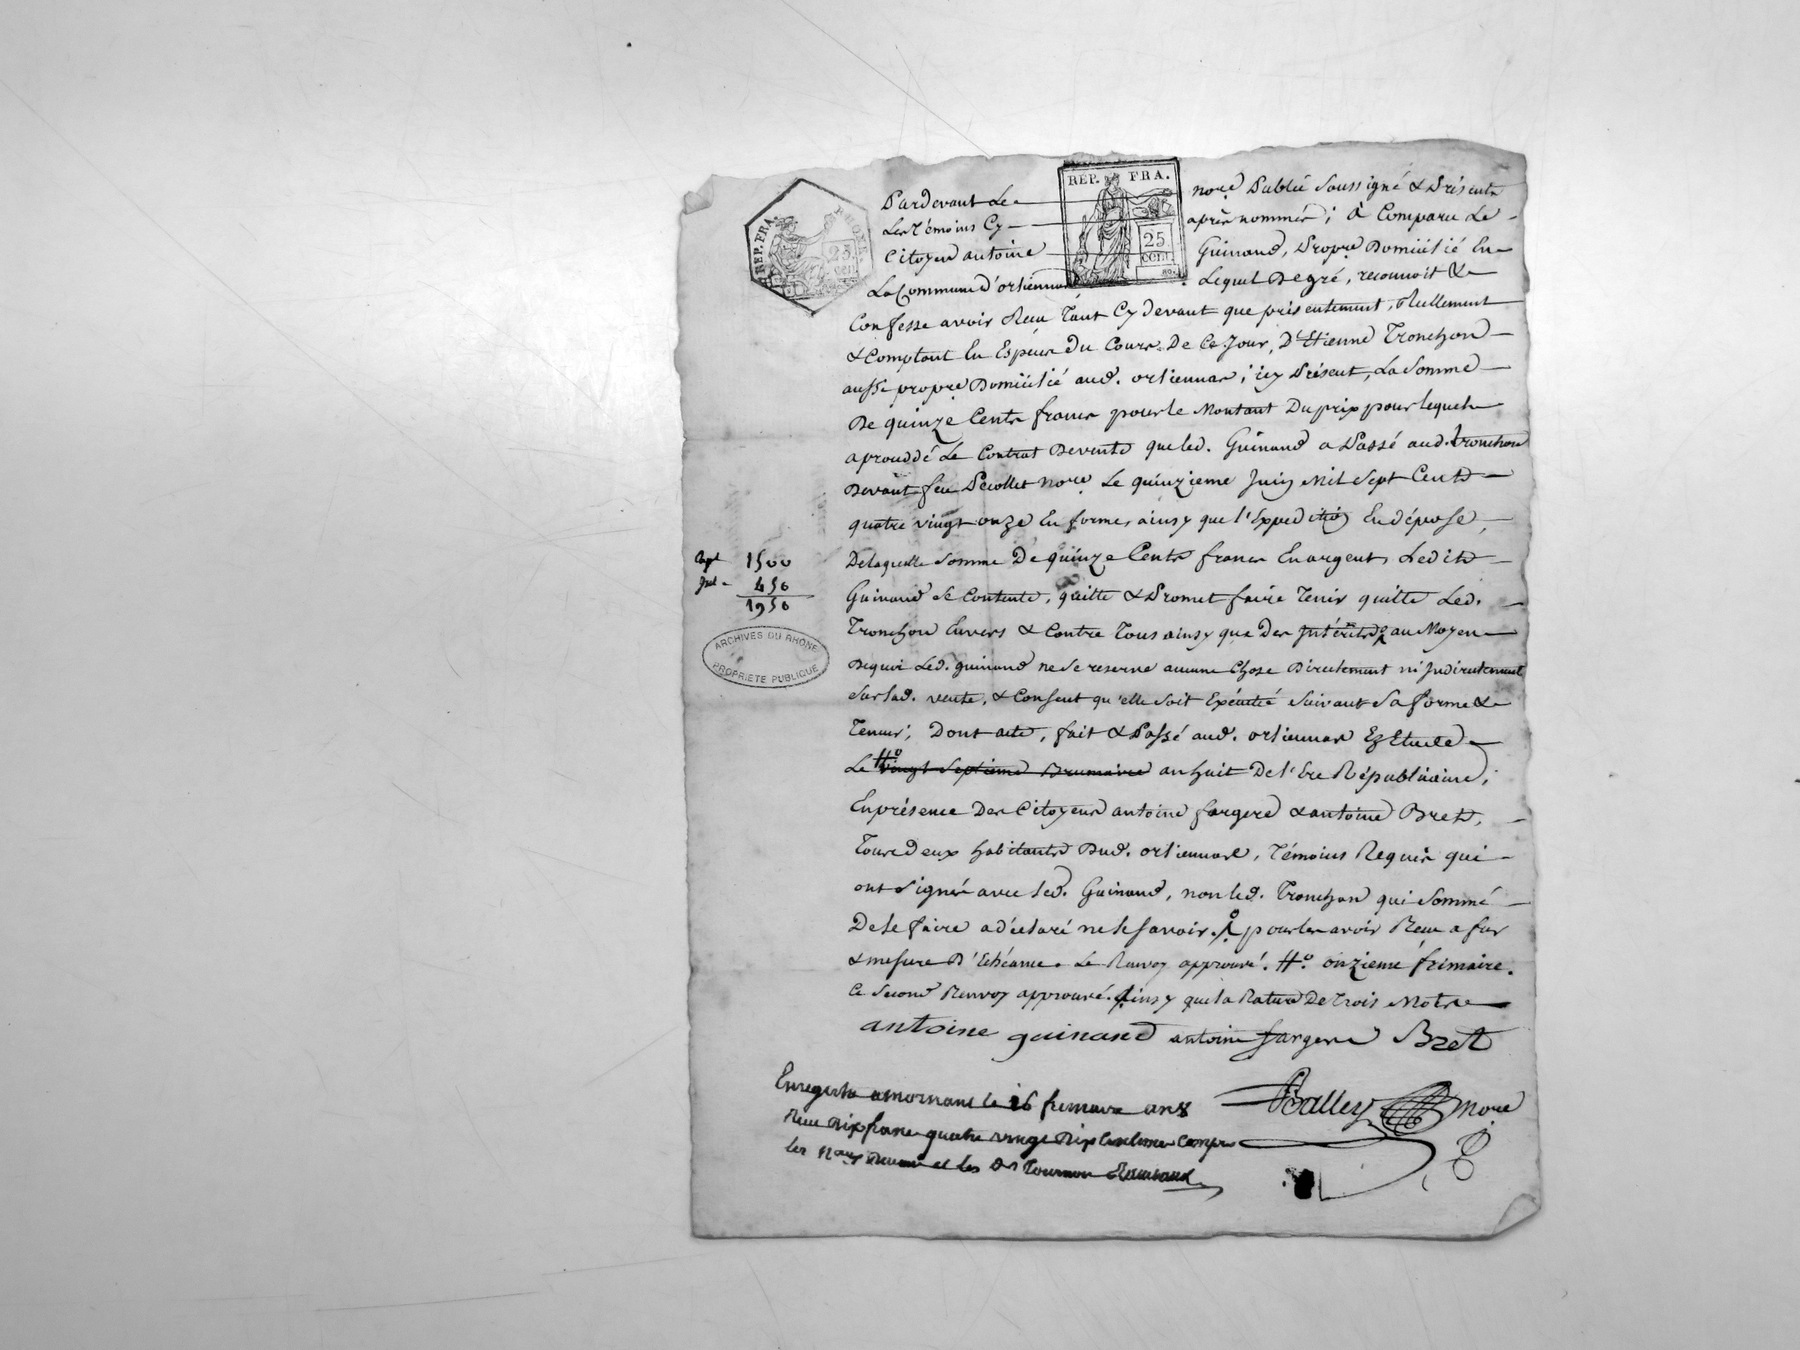 REP. FRA.
25
CEN.
RHONE
REP. FRA.
25
CEN.
Pardevant Le nore Public soussigné & Présents
Les Témoins Cy après nommés; à Comparu Le
Citoyen antoine Guinand, Propre Domicilié En
La Commune d'orlienas Lequel De gré, reconnoit &
Confesse avoir Recu Tant Cy devant que présentement, Réellement
& Comptant En Espèces Du Cours De Ce Jour, D'Etienne Tronchon
aussi propre Domicilié aud. orlienas; icy Présent, La Somme
De quinze Cents francs pour le Montant Du prix pour lequel
a procédé Le Contrat De vente que led. Guinand a Passé aud. Tronchon
Devant feu Pecollet nore Le quinzieme Juin Mil Sept Cents
quatre vingt onze En forme, ainsy que l'Expedition En dépose,
De laquelle Somme De quinze Cents francs En argent, Ledit
Guinand Se Contente, quitte & Promet faire Tenir quitte Led.
Tronchon Envers & Contre Tous ainsy que Des Intérêts au Moyen
De quoi Led. guinand ne Se reserve aucune Chose Directement ni Indirectement
Sur lad. vente, & Consent qu'elle Soit Exécutée Suivant Sa forme &
Teneur; Dont acte, fait & Passé aud. orlienas Ez Etude
Le #° vingt Septieme Brumaire an huit De l'Ere Républicaine;
En présence Des Citoyens antoine fargere & antoine Bret,
Tous Deux habitants Dud. orlienas, Témoins Requis qui
ont Signé avec led. Guinand, non led. Tronchon qui Sommé
De le faire a déclaré ne le Savoir. pour les avoir Recu a fur
& mesure D'Echéance. Le Renvoy approuvé. #° onzieme frimaire.
Ce Second Renvoy approuvé. Ainsy que la Rature De Trois Mots
antoine guinand antoine fargere Bret
Balley nore
1500
450
1950
ARCHIVES DU RHONE
PROPRIETE PUBLIQUE
Enregistré a mornant le 16 frimaire an 8
Recu Dix francs quatre vingt Dix Centimes Compris